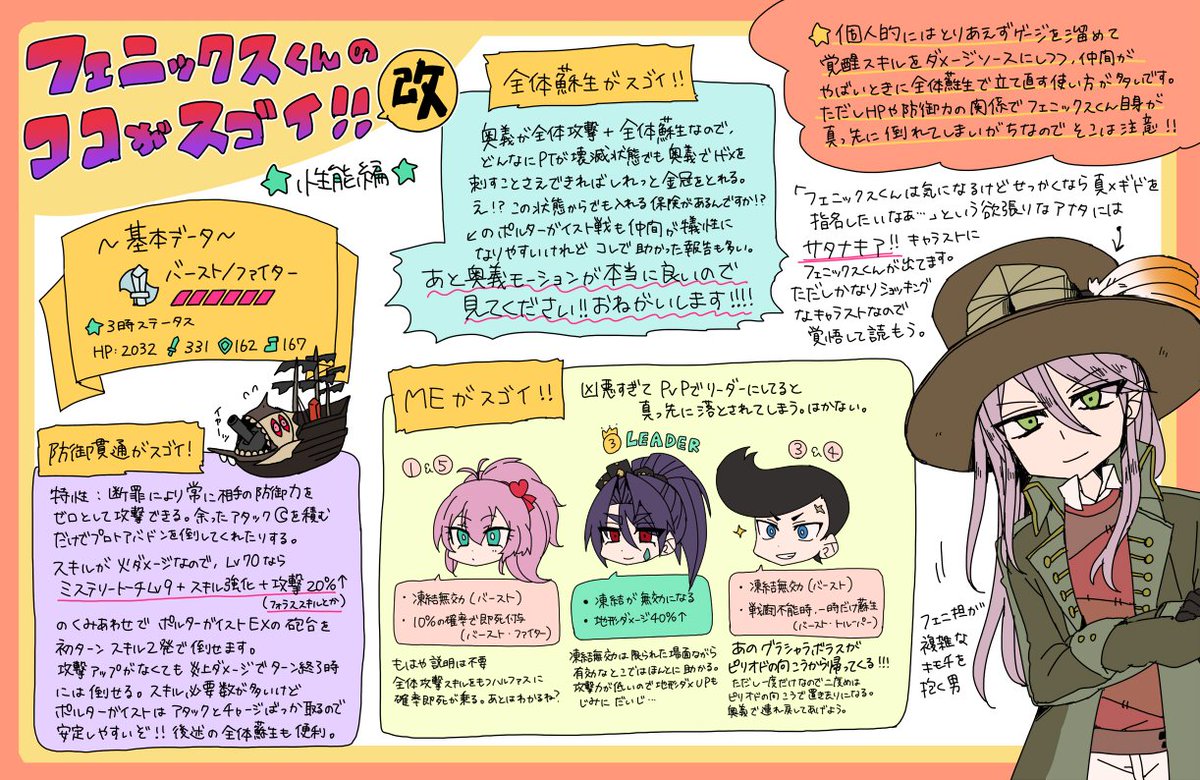 フェニックスくんの
ココがスゴイ!!
改
性能編
~基本データ~
バースト/ファイター
3時ステータス
HP:2032 331 162 167
防御貫通がスゴイ!
特性:断罪により常に相手の防御力を
ゼロとして攻撃できる。余ったアタックⒸを積む
だけでプロトアバドンを倒してくれたりする。
スキルが火ダメージなので、Lv70なら
ミステリートーチLv9+スキル強化+攻撃20%↑
(フォラススキルとか)
のくみあわせで ポルターガイストEXの砲台を
初ターン スキル2発で倒せます。
攻撃アップがなくても炎上ダメージでターン終了時
には倒せる。スキル必要数が多いけど
ポルターガイストは アタックとチャージばっか取るので
安定しやすいぞ!! 後述の全体蘇生も便利。
全体蘇生がスゴイ!!
奥義が全体攻撃+全体蘇生なので、
どんなにPTが壊滅状態でも奥義でトドメを
刺すことさえできればしれっと金冠をとれる。
え!?この状態からでも入れる保険があるんですか!?
↙のポルターガイスト戦も仲間が犠牲に
なりやすいけれど コレで助かった報告も多い。
あと奥義モーションが本当に良いので
見てください!!おねがいします!!!!
☆個人的にはとりあえずゲージを溜めて
覚醒スキルをダメージソースにしつつ、仲間が
やばいときに全体蘇生で立て直す使い方が多いです。
ただしHPや防御力の関係でフェニックスくん自身が
真っ先に倒れてしまいがちなのでそこは注意!!
「フェニックスくんは気になるけどせっかくなら真メギドを
指名したいなあ…」という欲張りなアナタには
サタナキア!! キャラストに
フェニックスくんが出てます。
ただしかなりショッキング
なキャラストなので
覚悟して読もう。
MEがスゴイ!!
凶悪すぎて PvPでリーダーにしてると
真っ先に落とされてしまう。はかない。
①&⑤
③ LEADER
③&④
・凍結無効(バースト)
・10%の確率で即死付与
(バースト・ファイター)
・凍結が無効になる
・地形ダメージ40%↑
・凍結無効(バースト)
・戦闘不能時、一時だけ蘇生
(バースト・トルーパー)
もはや説明は不要
全体攻撃スキルをもつハルファスに
確率即死が乗る。あとはわかるね?
凍結無効は限られた場面ながら
有効なとこではほんとに助かる。
攻撃力が低いので地形ダメUPも
じみに だいじ…
あのグラシャラボラスが
ピリオドの向こうから帰ってくる!!!
ただし一度だけなので二度めは
ピリオドの向こうで置き去りになる。
奥義で連れ戻してあげよう。
フェニ担が
複雑な
キモチを
抱く男